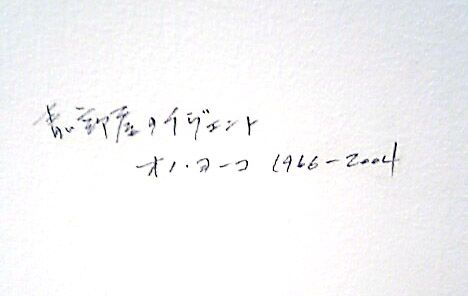 青い部屋のイヴェント
オノ・ヨーコ 1966-2004